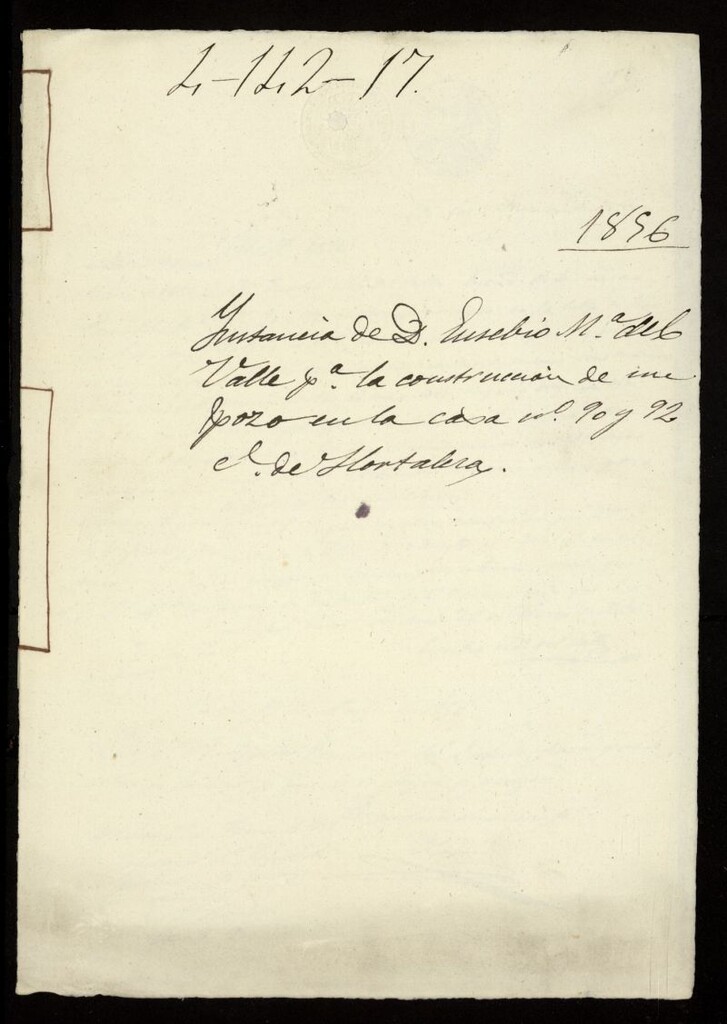 4-142-17.
1856
Instancia de D. Eusebio Mª. del
Valle pª. la construccion de un
pozo en la casa nº. 90 y 92
C. de Hortaleza.